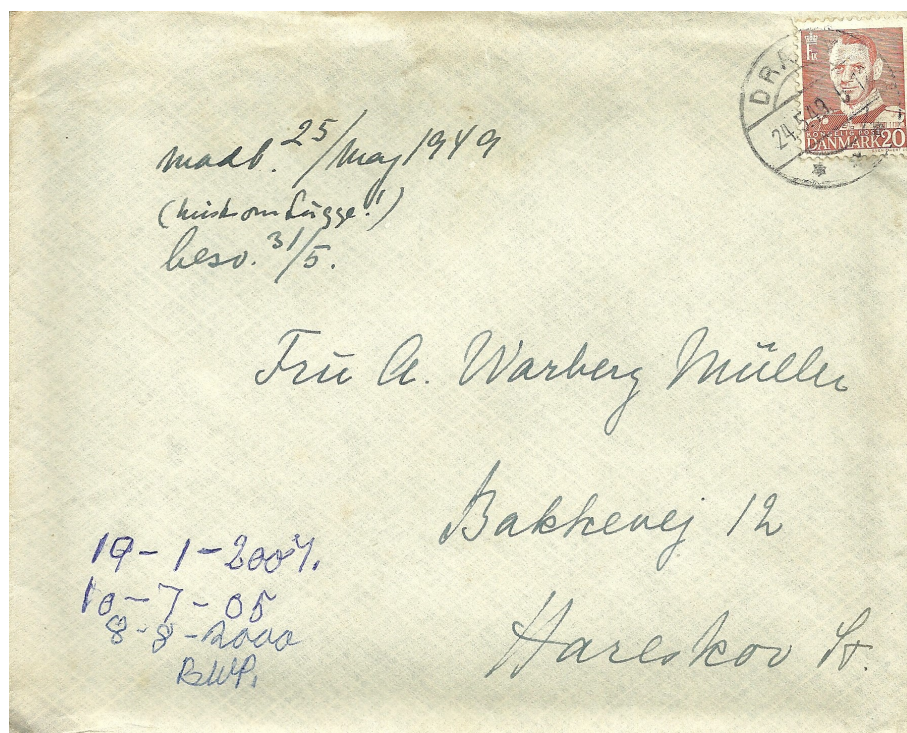 DRA
24.5.49
KONGELIG POST
DANMARK 20
modt. 25/Maj 1949
(husk om Lugge!)
besv. 31/5.
Fru A. Warberg Müller
Bakkevej 12
Hareskov St.
19-1-2007.
10-7-05
8-8-2000
BWP.